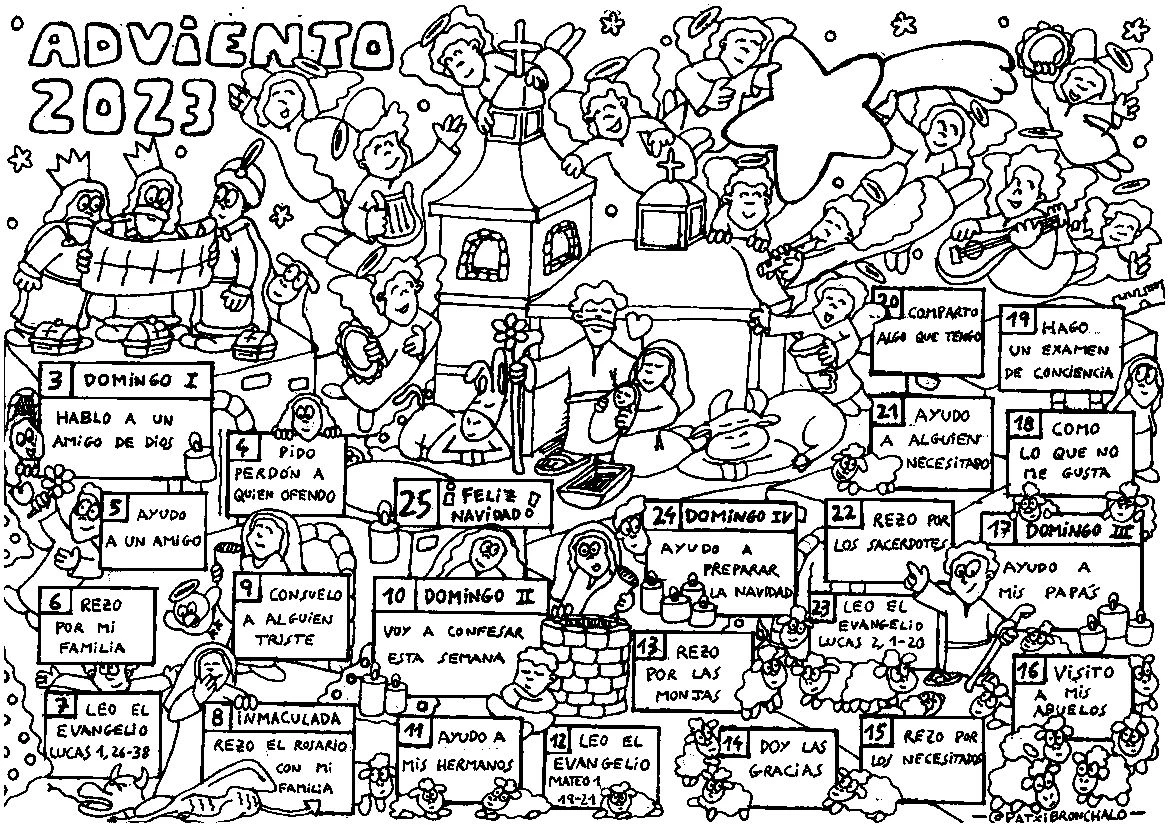 ADViENTO
2023
3 DOMiNGO I
HABLO A UN
AMIGO DE DIOS
4 PIDO
PERDÓN A
QUIEN OFENDO
5 AYUDO
A UN AMIGO
6 REZO
POR MI
FAMILIA
7 LEO EL
EVANGELIO
LUCAS 1, 26-38
8 INMACULADA
REZO EL ROSARIO
CON MI
FAMILIA
9 CONSUELO
A ALGUIEN
TRISTE
10 DOMINGO II
VOY A CONFESAR
ESTA SEMANA
11 AYUDO A
MIS HERMANOS
12 LEO EL
EVANGELIO
MATEO 1
18-21
13 REZO
POR LAS
MONJAS
14 DOY LAS
GRACIAS
15 REZO POR
LOS NECESITADOS
16 VISITO
A MIS
ABUELOS
17 DOMINGO III
AYUDO A
MIS PAPÁS
18 COMO
LO QUE NO
ME GUSTA
19 HAGO
UN EXAMEN
DE CONCIENCIA
20 COMPARTO
ALGO QUE TENGO
21 AYUDO
A ALGUIEN
NECESITADO
22 REZO POR
LOS SACERDOTES
23 LEO EL
EVANGELIO
LUCAS 2, 1-20
24 DOMINGO IV
AYUDO A
PREPARAR
LA NAVIDAD
25 ¡FELIZ
NAVIDAD!
-@PATXIBRONCHALO-